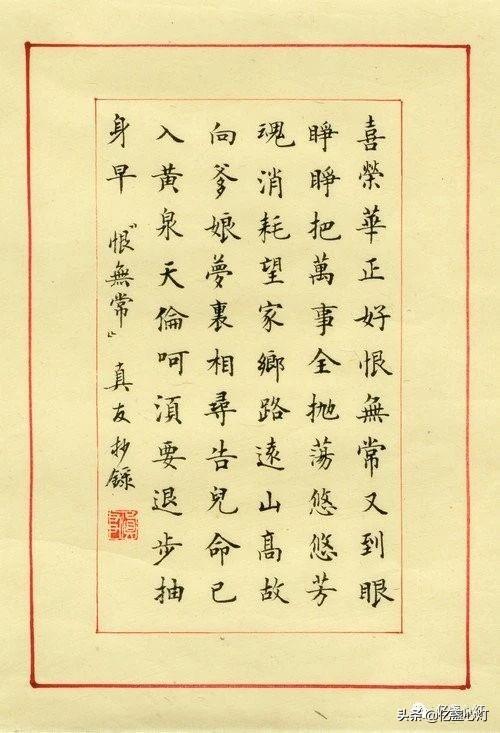 喜榮華正好恨無常又到眼
睜睜把萬事全抛蕩悠悠芳
魂消耗望家鄉路遠山髙故
向爹娘夢裏相尋告兒命已
入黄泉天倫呵湏要退步抽
身早『恨無常』真友抄錄
亿盏心灯
头条@亿盏心灯